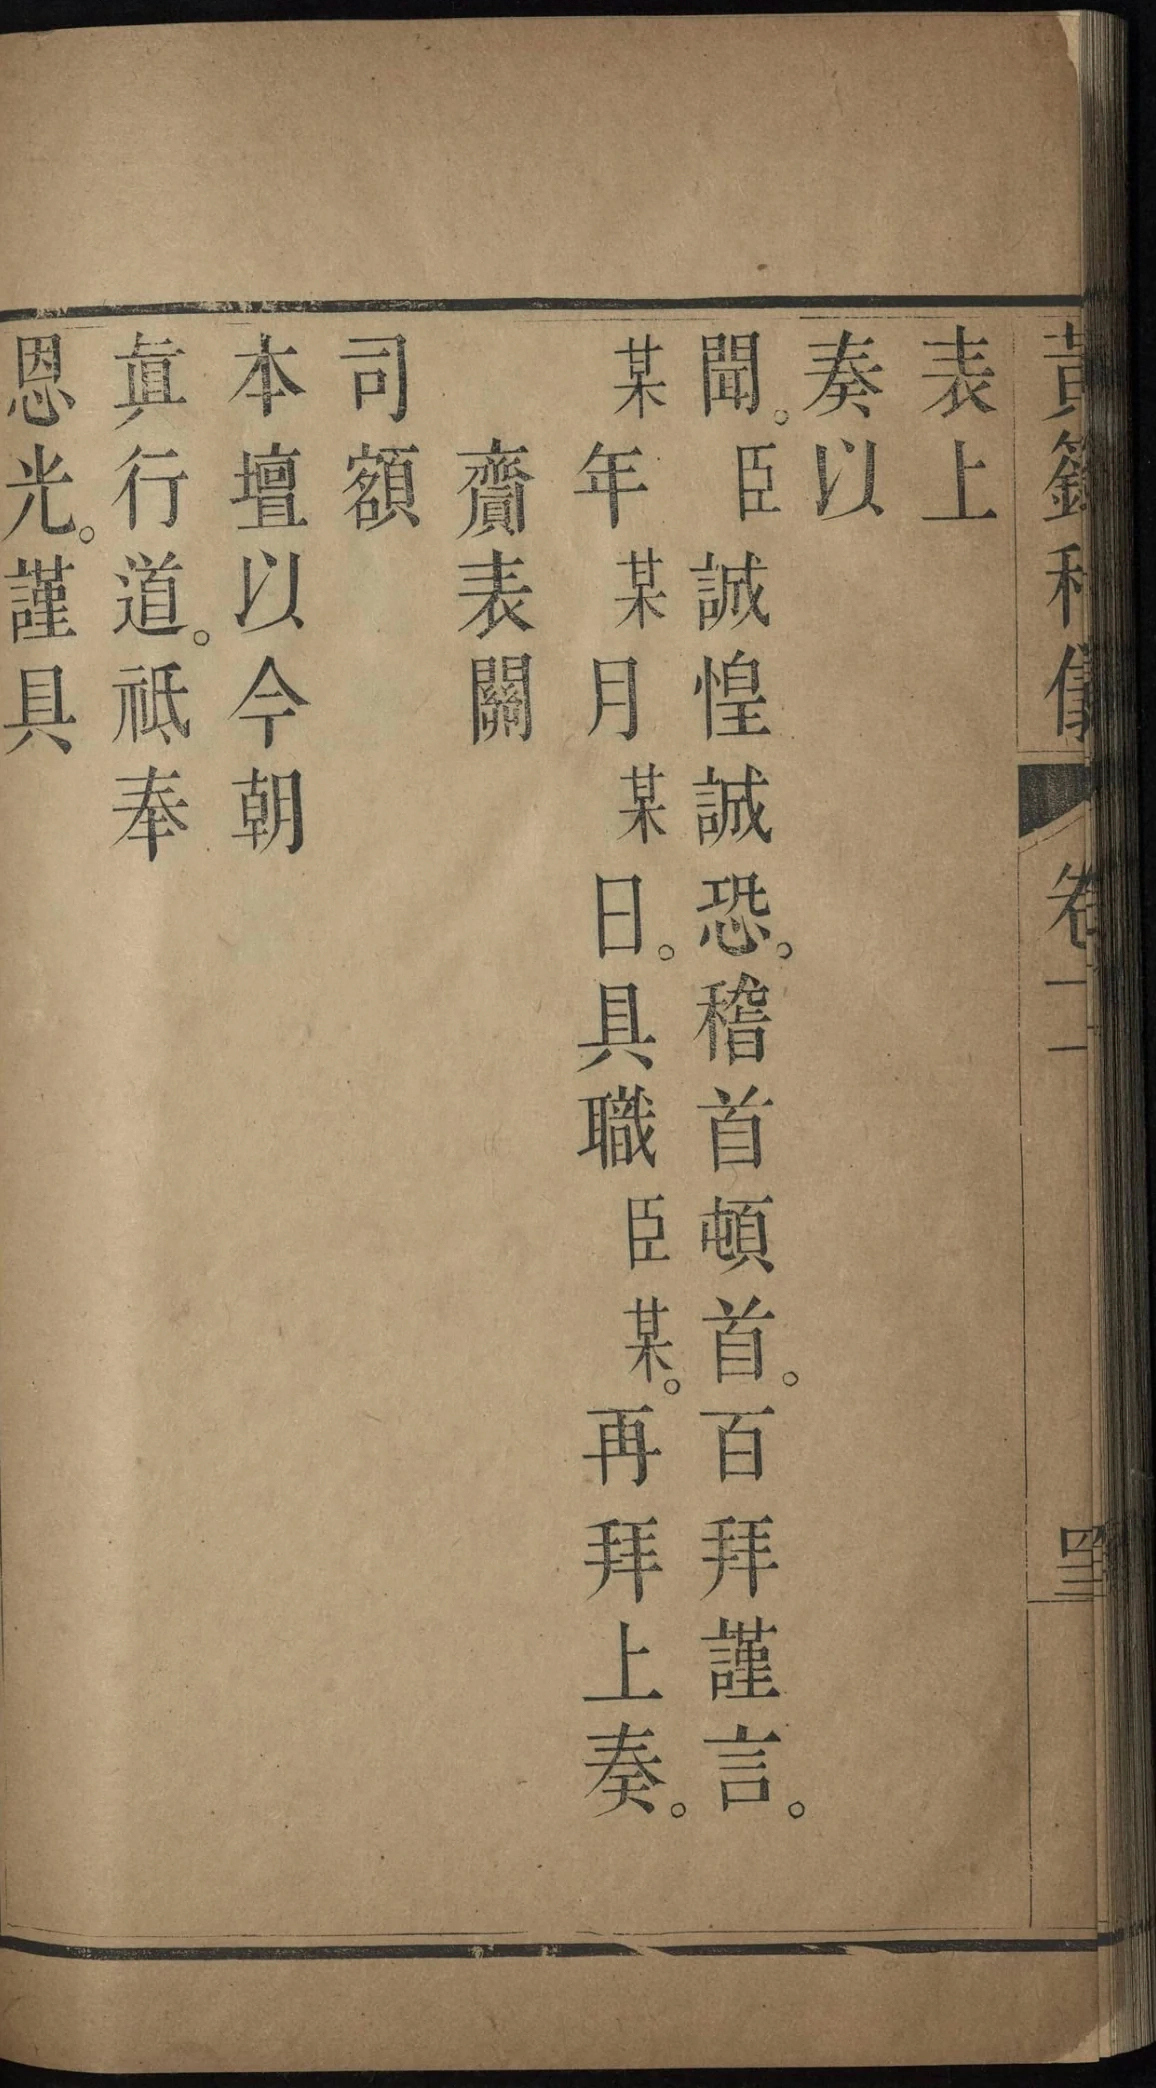 黃籙科儀 卷十二
表上
奏以
聞。臣誠惶誠恐。稽首頓首。百拜謹言。
某年某月某日。具職臣某。再拜上奏。
齎表關
司額
本壇以今朝
眞行道。祗奉
恩光。謹具